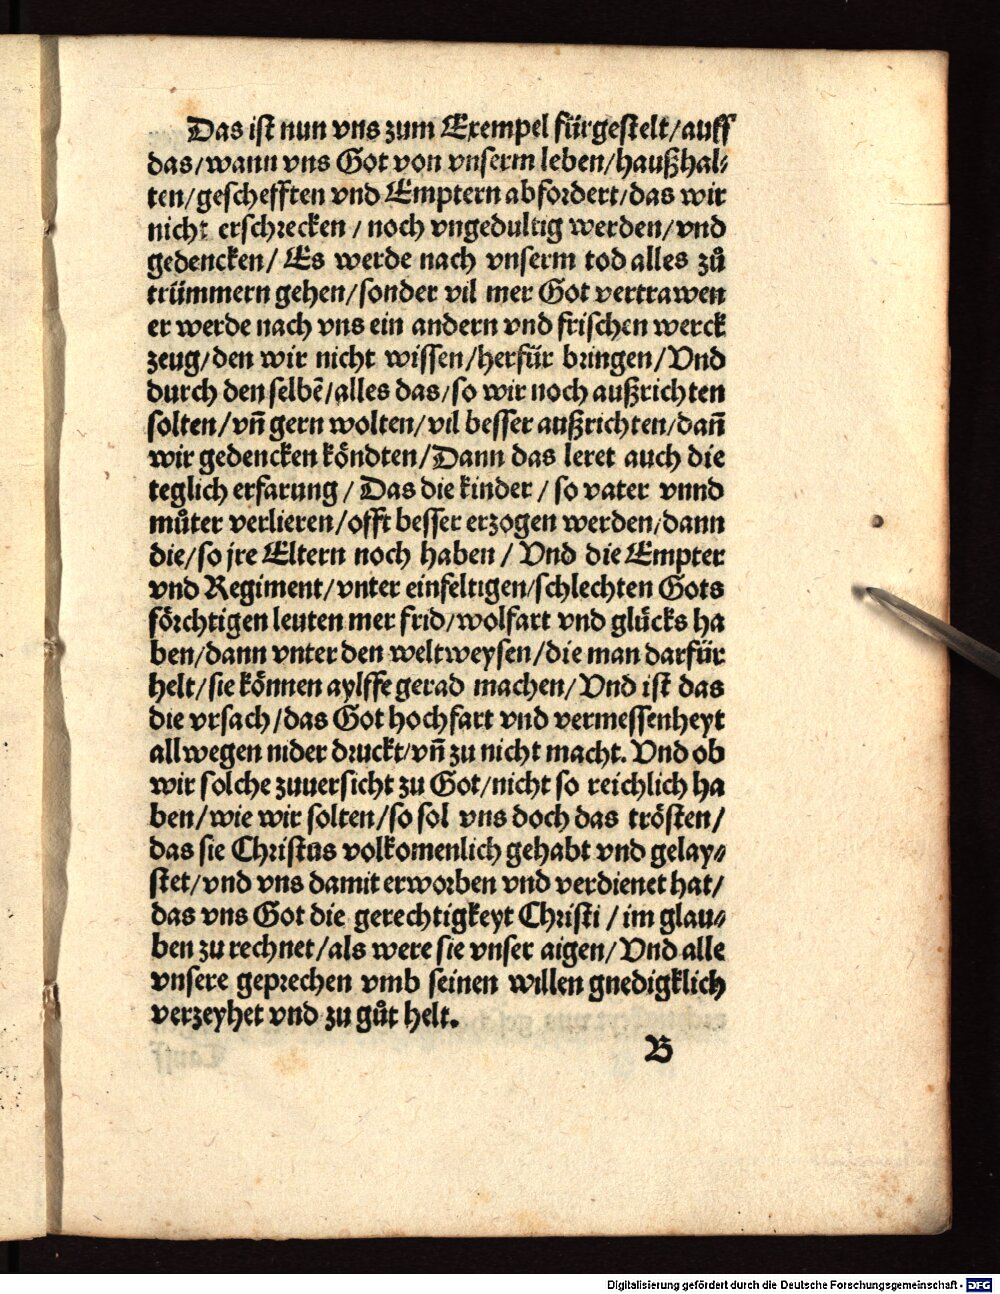 Das ist nun vns zum Exempel fürgestelt/auff
das/wann vns Got von vnserm leben/haußhal-
ten/geschefften vnd Emptern abfordert/das wir
nicht erschrecken / noch vngedultig werden/vnd
gedencken/ Es werde nach vnserm tod alles zů
trümmern gehen/sonder vil mer Got vertrawen
er werde nach vns ein andern vnd frischen werck
zeug/den wir nicht wissen/herfür bringen/Vnd
durch den selbē/alles das/so wir noch außrichten
solten/vn̄ gern wolten/vil besser außrichten/dan̄
wir gedencken köndten/Dann das leret auch die
teglich erfarung / Das die kinder / so vater vnnd
můter verlieren/offt besser erzogen werden/dann
die/so jre Eltern noch haben / Vnd die Empter
vnd Regiment/vnter einfeltigen/schlechten Gots
förchtigen leuten mer frid/wolfart vnd glücks ha
ben/dann vnter den weltweysen/die man darfür
helt/sie können aylffe gerad machen/Vnd ist das
die vrsach/das Got hochfart vnd vermessenheyt
allwegen nider druckt/vn̄ zu nicht macht. Vnd ob
wir solche zuuersicht zu Got/nicht so reichlich ha
ben/wie wir solten/so sol vns doch das trösten/
das sie Christus volkomenlich gehabt vnd gelay-
stet/vnd vns damit erworben vnd verdienet hat/
das vns Got die gerechtigkeyt Christi / im glau-
ben zu rechnet/als were sie vnser aigen/Vnd alle
vnsere geprechen vmb seinen willen gnedigklich
verzeyhet vnd zu gůt helt.
B
Digitalisierung gefördert durch die Deutsche Forschungsgemeinschaft - DFG